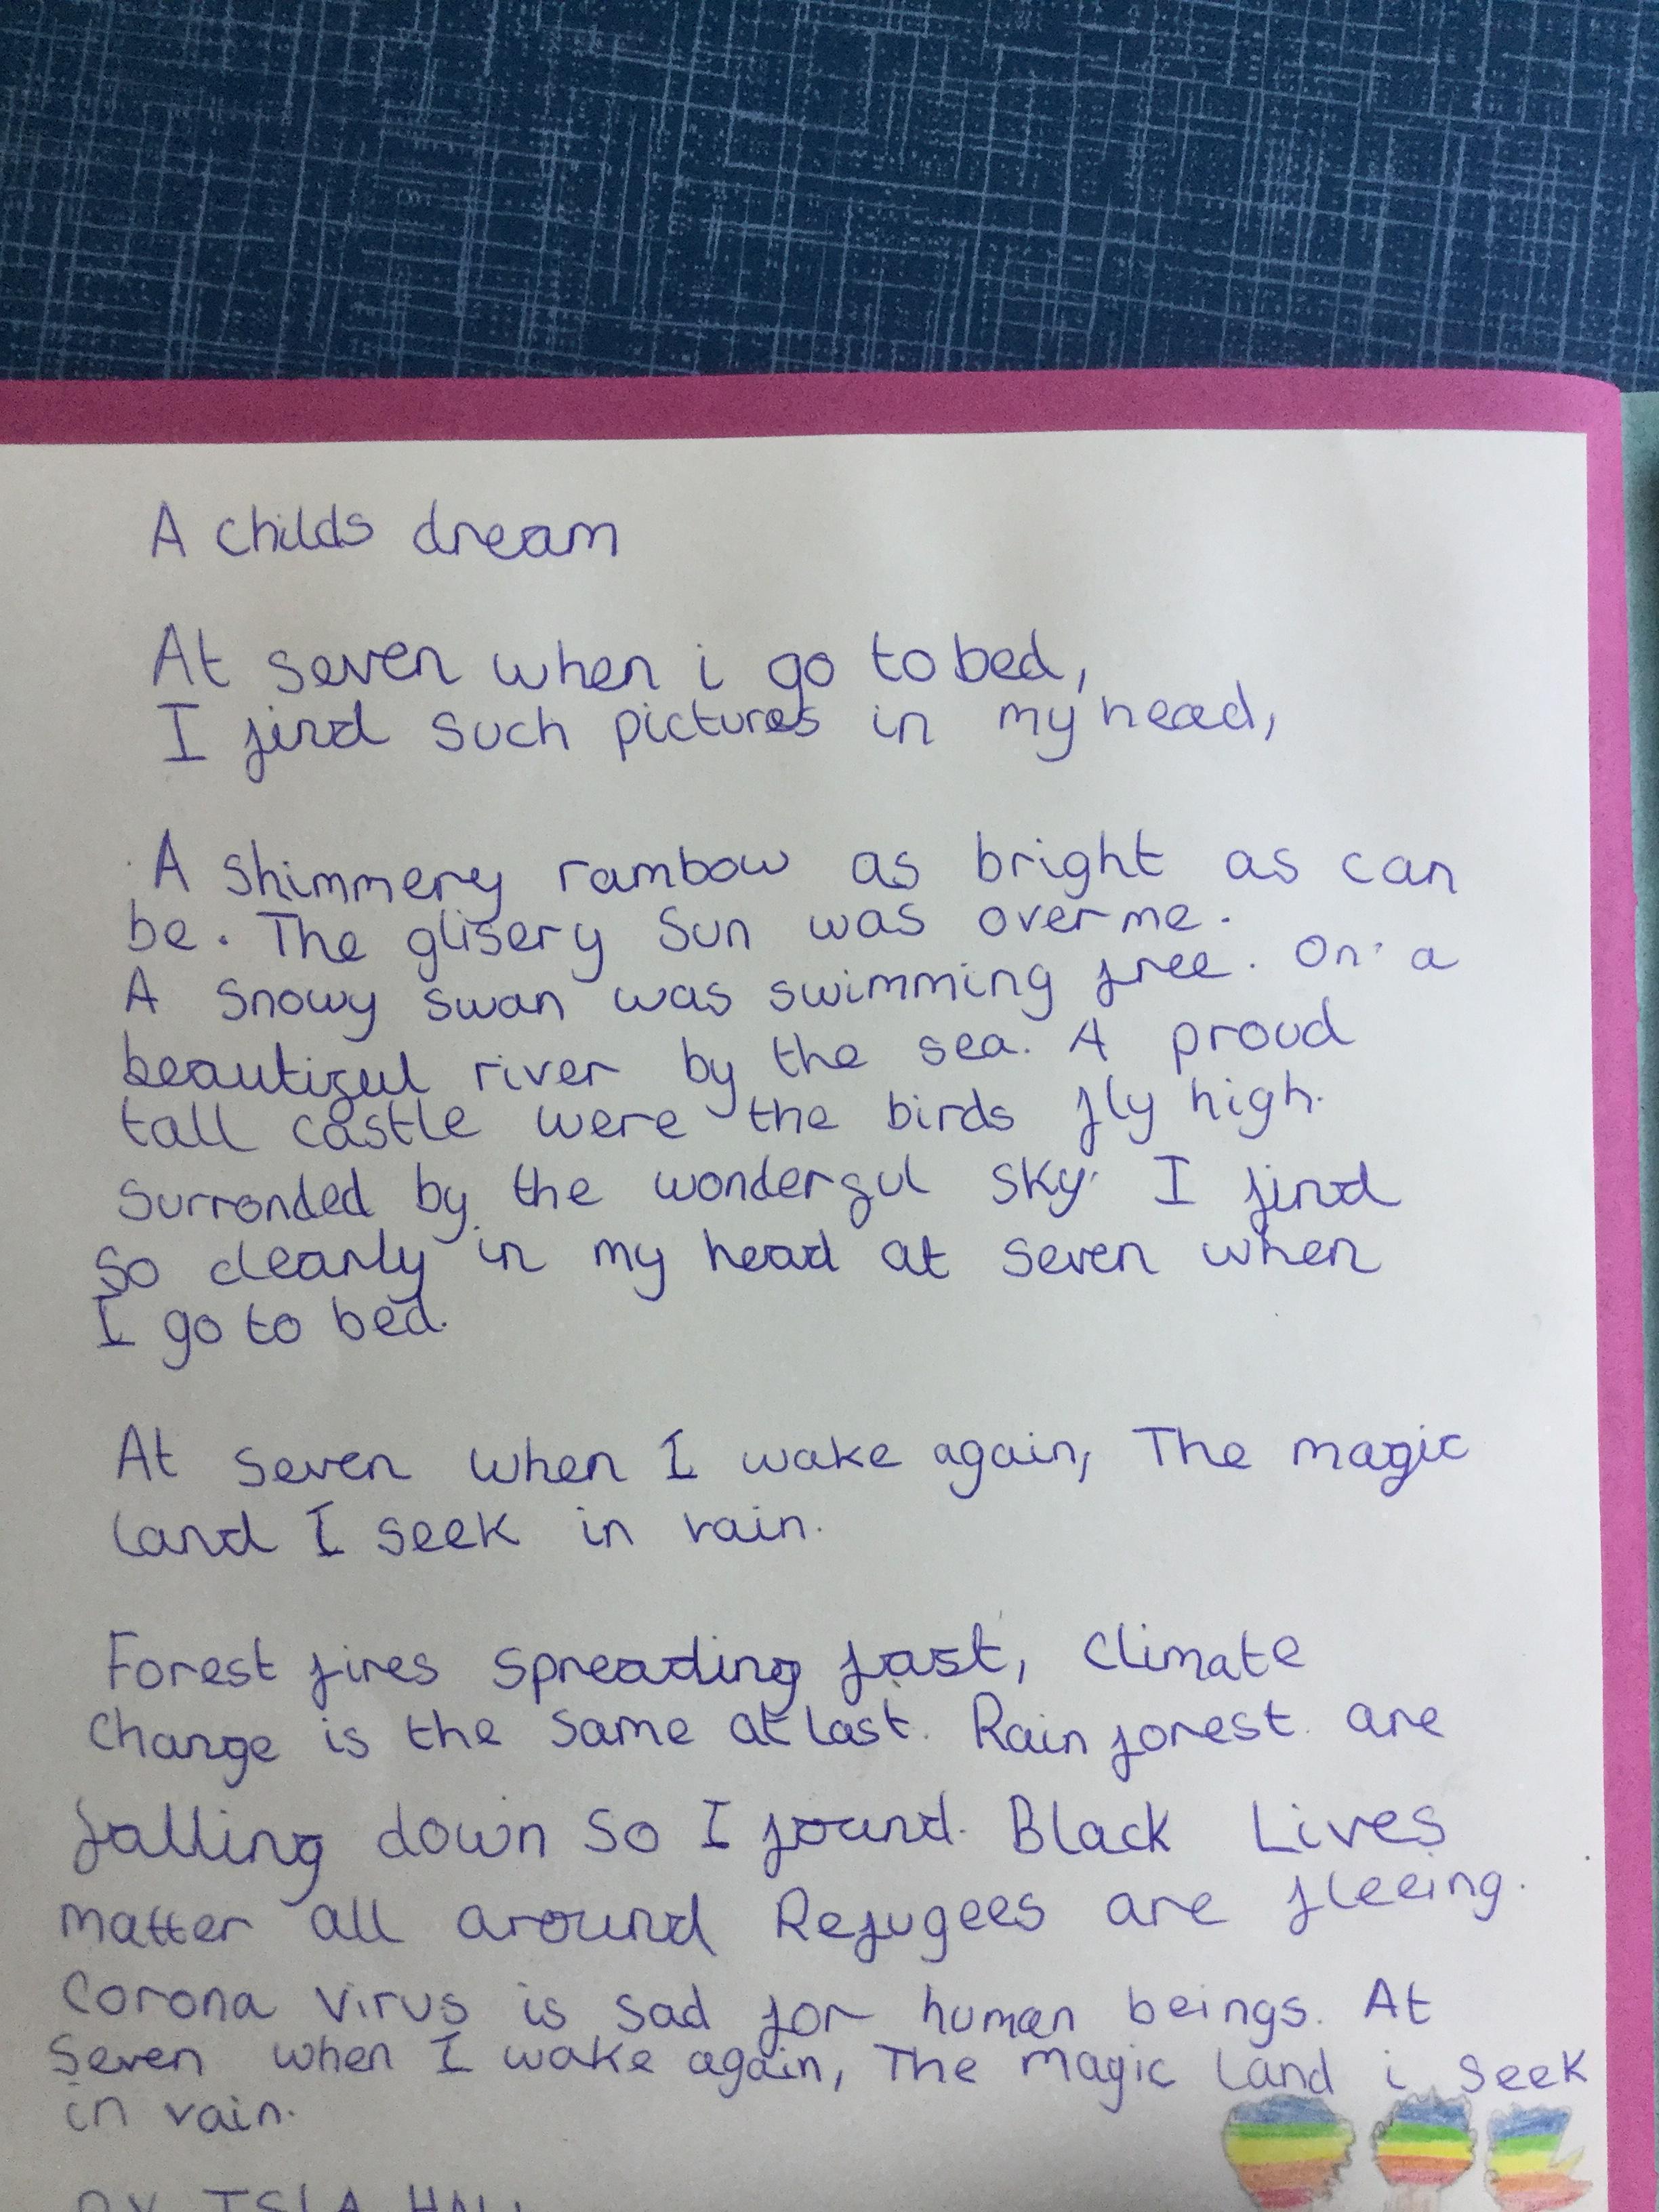 A childs dream
At seven when i go to bed,
I find such pictures in my head,
A shimmery rambow as bright as can
be. The glisery Sun was over me.
A snowy swan was swimming free. On a
beautiful river by the sea. A proud
tall castle were the birds fly high.
Surronded by the wonderful sky. I find
so clearly in my head at seven when
I go to bed.
At seven when I wake again, The magic
land I seek in vain.
Forest fires spreading fast, Climate
Change is the same at last. Rain forest are
falling down so I found. Black Lives
matter all around Refugees are fleeing.
Corona Virus is sad for human beings. At
Seven when I wake again, The magic land i seek
in vain.
BY ISLA